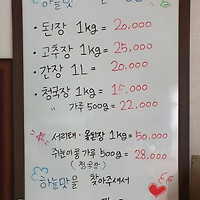 하늘맛
• 된장 1kg = 20,000
• 고추장 1kg = 25,000
• 간장 1L = 20,000
• 청국장 1kg = 15,000
〃 가루 500g = 22,000
서리태 · 1kg = 50,000
쥐눈이콩가루 500g = 28,000
(청국장)
하늘맛을 찾아주셔서